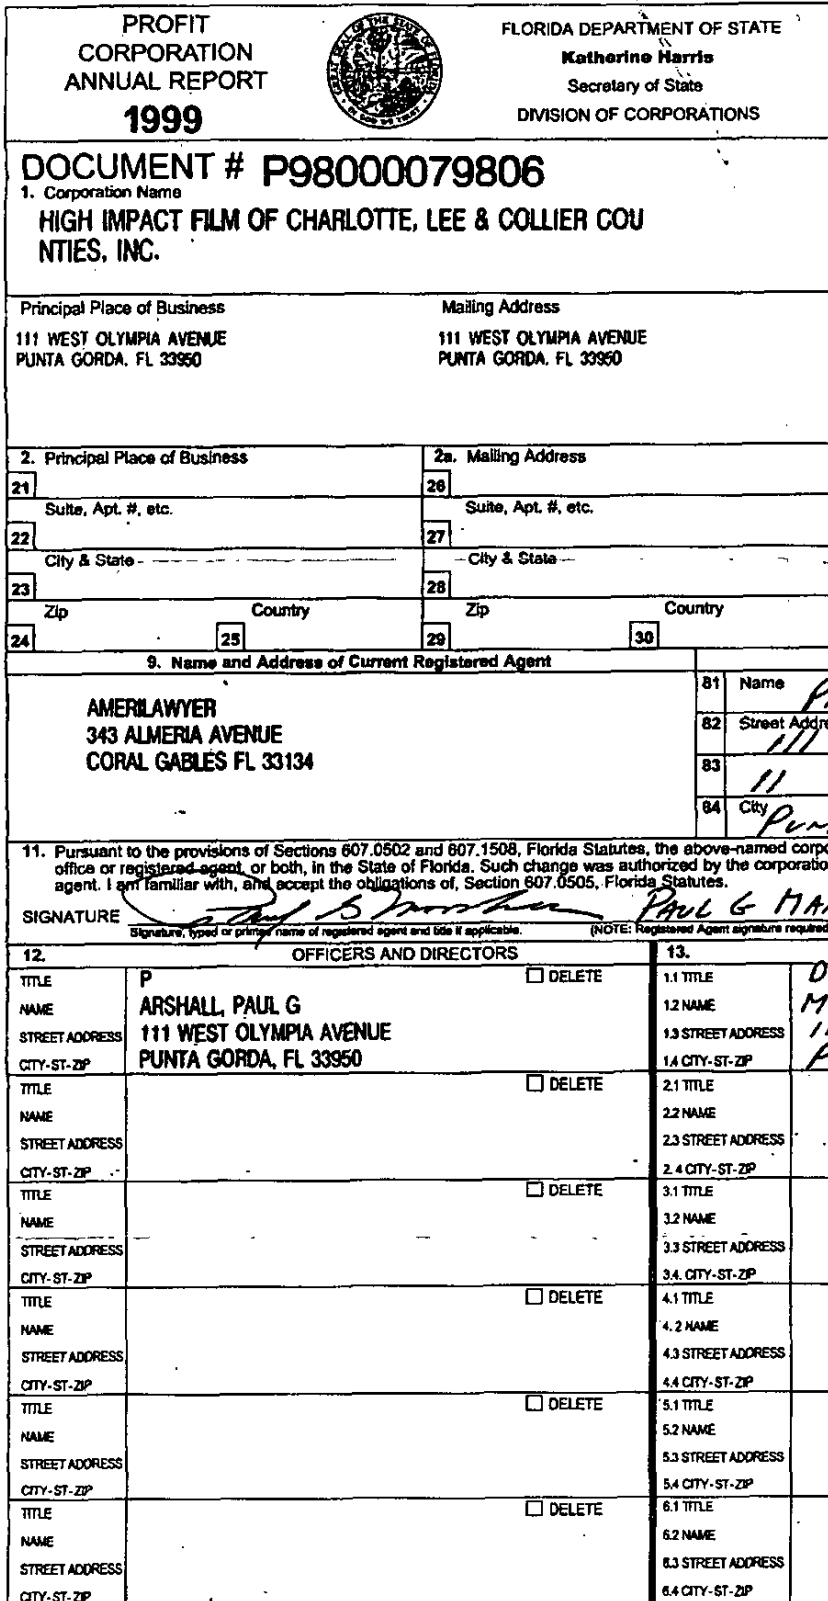 PROFIT
CORPORATION
ANNUAL REPORT
1999
FLORIDA DEPARTMENT OF STATE
Katherine Harris
Secretary of State
DIVISION OF CORPORATIONS
DOCUMENT # P98000079806
1. Corporation Name
HIGH IMPACT FILM OF CHARLOTTE, LEE & COLLIER COU
NTIES, INC.
Principal Place of Business
Mailing Address
111 WEST OLYMPIA AVENUE
PUNTA GORDA, FL 33950
111 WEST OLYMPIA AVENUE
PUNTA GORDA, FL 33950
2. Principal Place of Business
2a. Mailing Address
21
26
Suite, Apt. #, etc.
Suite, Apt. #, etc.
22
27
City & State
City & State
23
28
Zip
Country
Zip
Country
24
25
29
30
9. Name and Address of Current Registered Agent
AMERILAWYER
343 ALMERIA AVENUE
CORAL GABLES FL 33134
81 Name
82 Street Addre
111
83
11
84 City
Pun
11. Pursuant to the provisions of Sections 607.0502 and 607.1508, Florida Statutes, the above-named corpo
office or registered agent, or both, in the State of Florida. Such change was authorized by the corporatio
agent. I am familiar with, and accept the obligations of, Section 607.0505, Florida Statutes.
SIGNATURE
PAUL G MAR
Signature, typed or printed name of registered agent and title if applicable.
(NOTE: Registered Agent signature required
12.
OFFICERS AND DIRECTORS
13.
TITLE P DELETE
NAME ARSHALL, PAUL G
STREET ADDRESS 111 WEST OLYMPIA AVENUE
CITY-ST-ZIP PUNTA GORDA, FL 33950
1.1 TITLE D
1.2 NAME M
1.3 STREET ADDRESS 11
1.4 CITY-ST-ZIP P
TITLE DELETE
NAME
STREET ADDRESS
CITY-ST-ZIP
2.1 TITLE
2.2 NAME
2.3 STREET ADDRESS
2.4 CITY-ST-ZIP
TITLE DELETE
NAME
STREET ADDRESS
CITY-ST-ZIP
3.1 TITLE
3.2 NAME
3.3 STREET ADDRESS
3.4. CITY-ST-ZIP
TITLE DELETE
NAME
STREET ADDRESS
CITY-ST-ZIP
4.1 TITLE
4.2 NAME
4.3 STREET ADDRESS
4.4 CITY-ST-ZIP
TITLE DELETE
NAME
STREET ADDRESS
CITY-ST-ZIP
5.1 TITLE
5.2 NAME
5.3 STREET ADDRESS
5.4 CITY-ST-ZIP
TITLE DELETE
NAME
STREET ADDRESS
CITY-ST-ZIP
6.1 TITLE
6.2 NAME
6.3 STREET ADDRESS
6.4 CITY-ST-ZIP